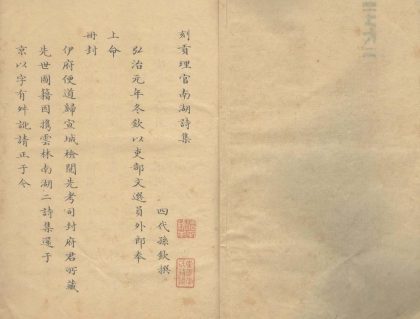 刻貢理官南湖詩集
四代孫欽撰
弘治元年冬欽以吏部文選員外郎奉
上命
冊封
伊府便道歸宣城檢閱先考司封府君所藏
先世國籍因攜雲林南湖二詩集還于
京以字有舛訛請正于今